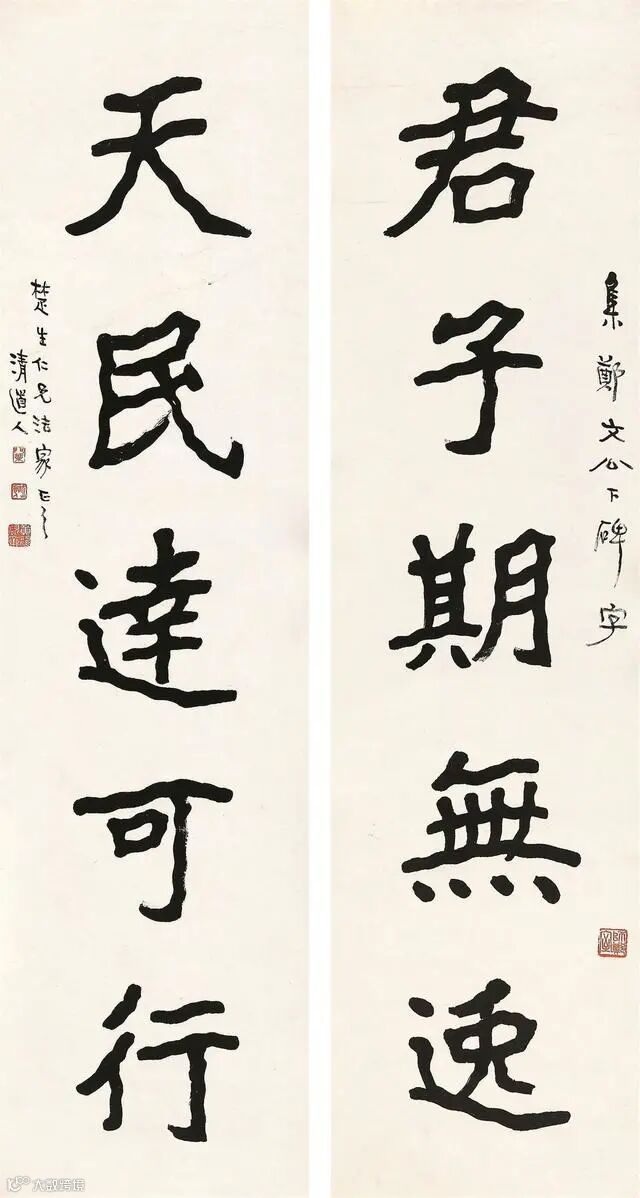 集鄭文公下碑字
君子期無逸
天民達可行
楚生仁兄法家正之
清道人
大数跨境